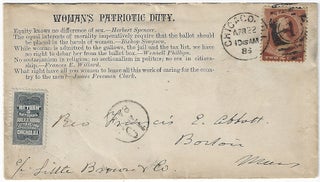 WOMAN'S PATRIOTIC DUTY.
Equity knows no difference of sex.—Herbert Spencer.
The great interests of morality imperatively require that the ballot should
be placed in the hands of women.—Bishop Simpson.
While woman is admitted to the gallows, the jail and the tax list, we have
no right to debar her from the ballot-box.—Wendell Phillips.
No sectarianism in religion; no sectionalism in politics; no sex in citizen-
ship.—Frances E. Willard.
What right have all you women to leave all this work of caring for the coun-
try to the men?—James Freeman Clark.
CHICAGO
APR 22
10 AM
Rev Francis E. Abbott,
Boston
Mass
c/o Little Brown & Co.